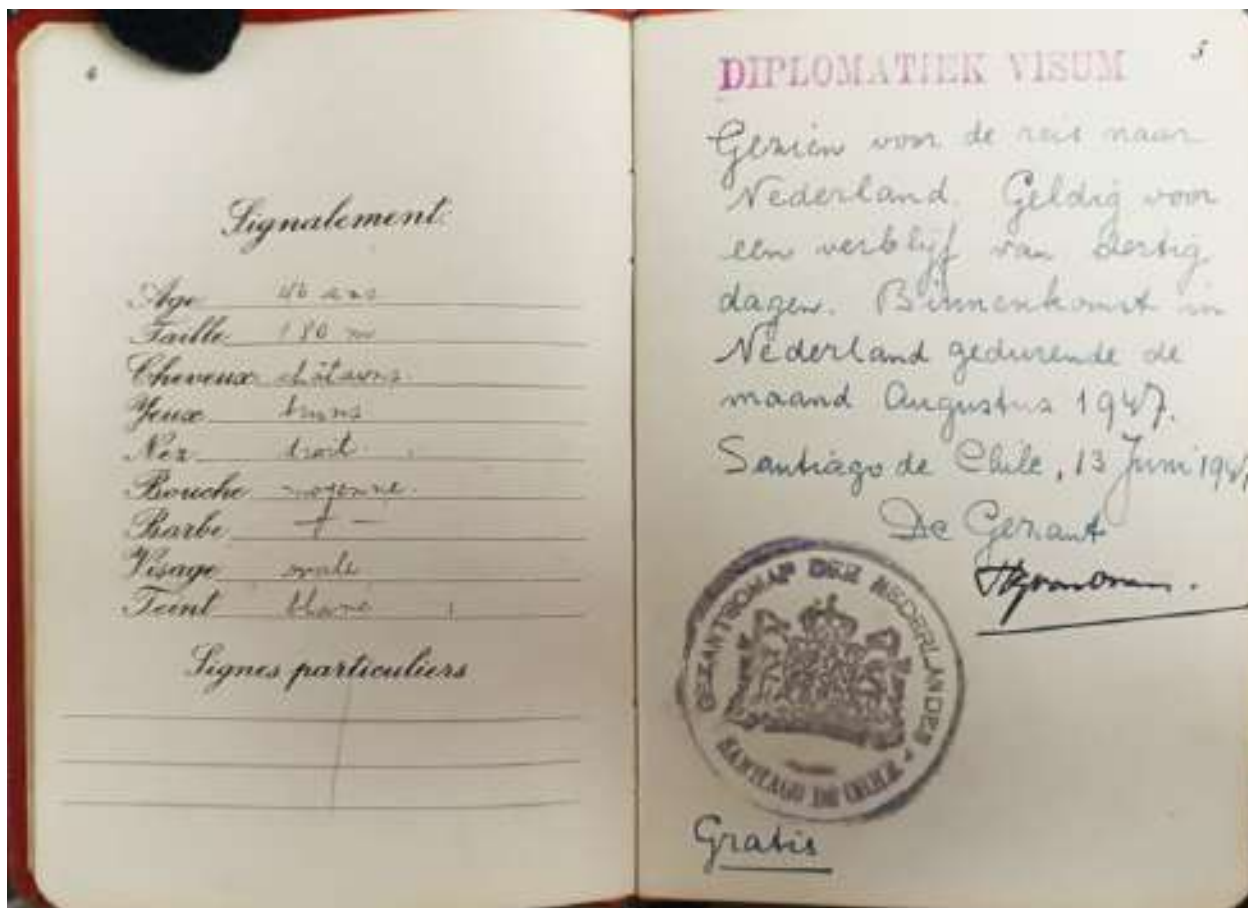 4
Signalement:
Age 46 ans
Taille 180 m
Cheveux châtains.
Yeux bruns
Nez droit.
Bouche moyenne.
Barbe
Visage ovale
Teint blanc
Signes particuliers
5
DIPLOMATIEK VISUM
Gezien voor de reis naar
Nederland. Geldig voor
een verblijf van dertig
dagen. Binnenkomst in
Nederland gedurende de
maand Augustus 1947.
Santiago de Chile, 13 Juni 1947
De Gezant
GEZANTSCHAP DER NEDERLANDEN
SANTIAGO DE CHILE
Gratis